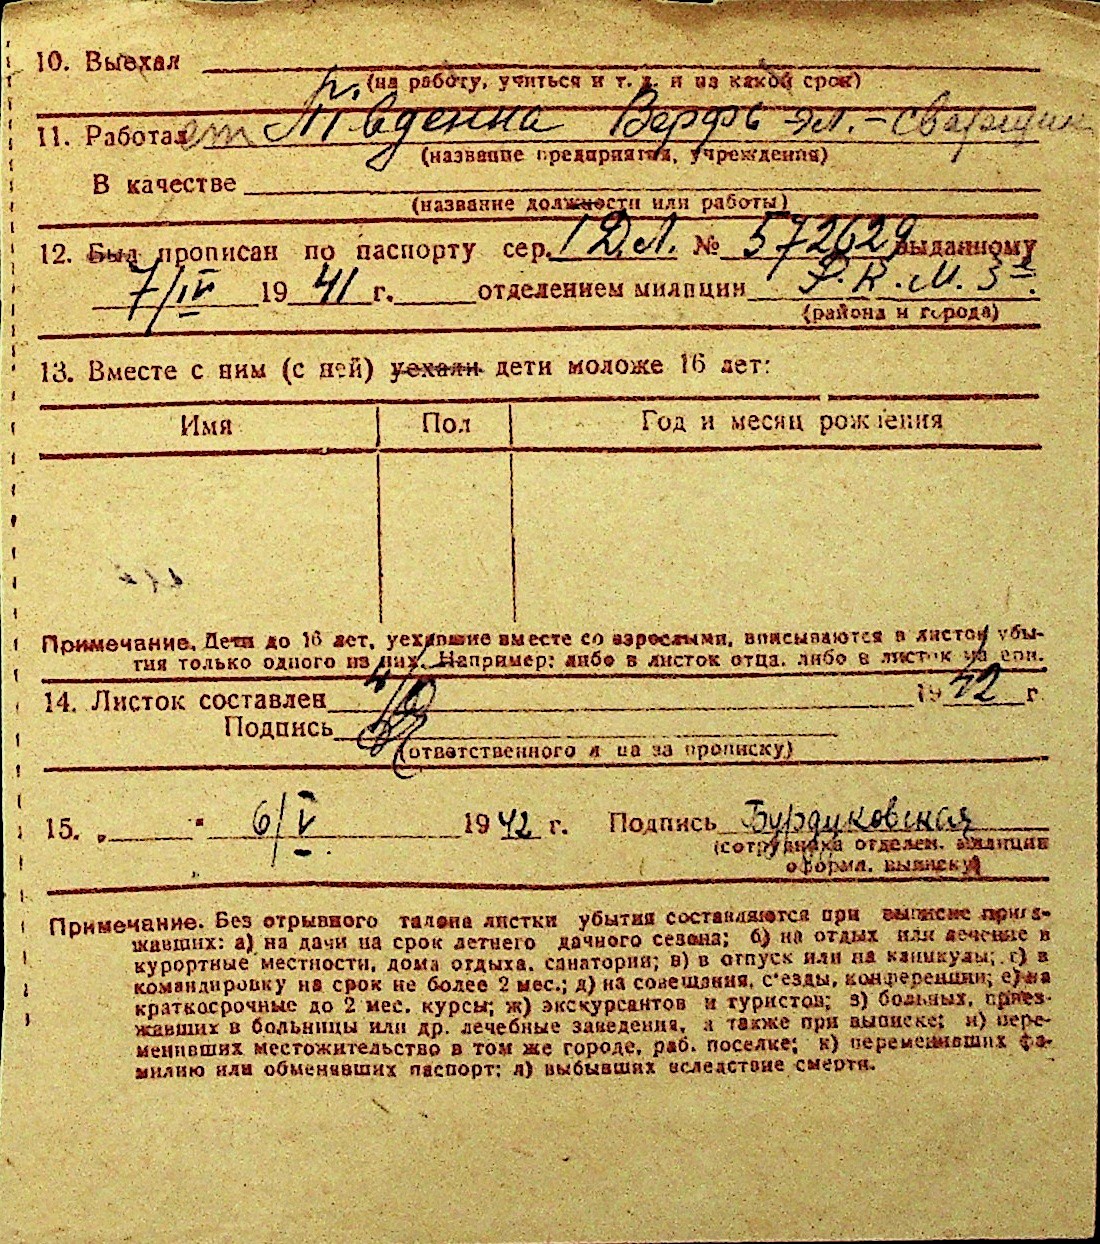 10. Выехал
(на работу, учиться и т. д. и на какой срок)
11. Работал Південна Верфь эл.-сварщик
(название предприятия, учреждения)
В качестве
(название должности или работы)
12. Был прописан по паспорту сер. I ДЛ. № 572629 выданному
7/IV 1941 г. отделением милиции Р.К.М. 3
(района и города)
13. Вместе с ним (с ней) уехали дети моложе 16 лет:
Имя Пол Год и месяц рождения
Примечание. Дети до 16 лет, уехавшие вместе со взрослыми, вписываются в листок убы-
тия только одного из них. Например: либо в листок отца, либо в листок
14. Листок составлен 1942 г
Подпись
(ответственного за прописку)
15. „ " 6/V 1942 г. Подпись Бурдуковская
(сотрудника отделен. милиции
оформ. выписку)
Примечание. Без отрывного талона листки убытия составляются при выписке приез-
жавших: а) на дачи на срок летнего дачного сезона; б) на отдых или лечение в
курортные местности, дома отдыха, санатории; в) в отпуск или на каникулы; г) в
командировку на срок не более 2 мес.; д) на совещания, с'езды, конференции; е) на
краткосрочные до 2 мес. курсы; ж) экскурсантов и туристов; з) больных, приез-
жавших в больницы или др. лечебные заведения, а также при выписке; и) пере-
менивших местожительство в том же городе, раб. поселке; к) переменивших фа-
милию или обменявших паспорт; л) выбывших вследствие смерти.